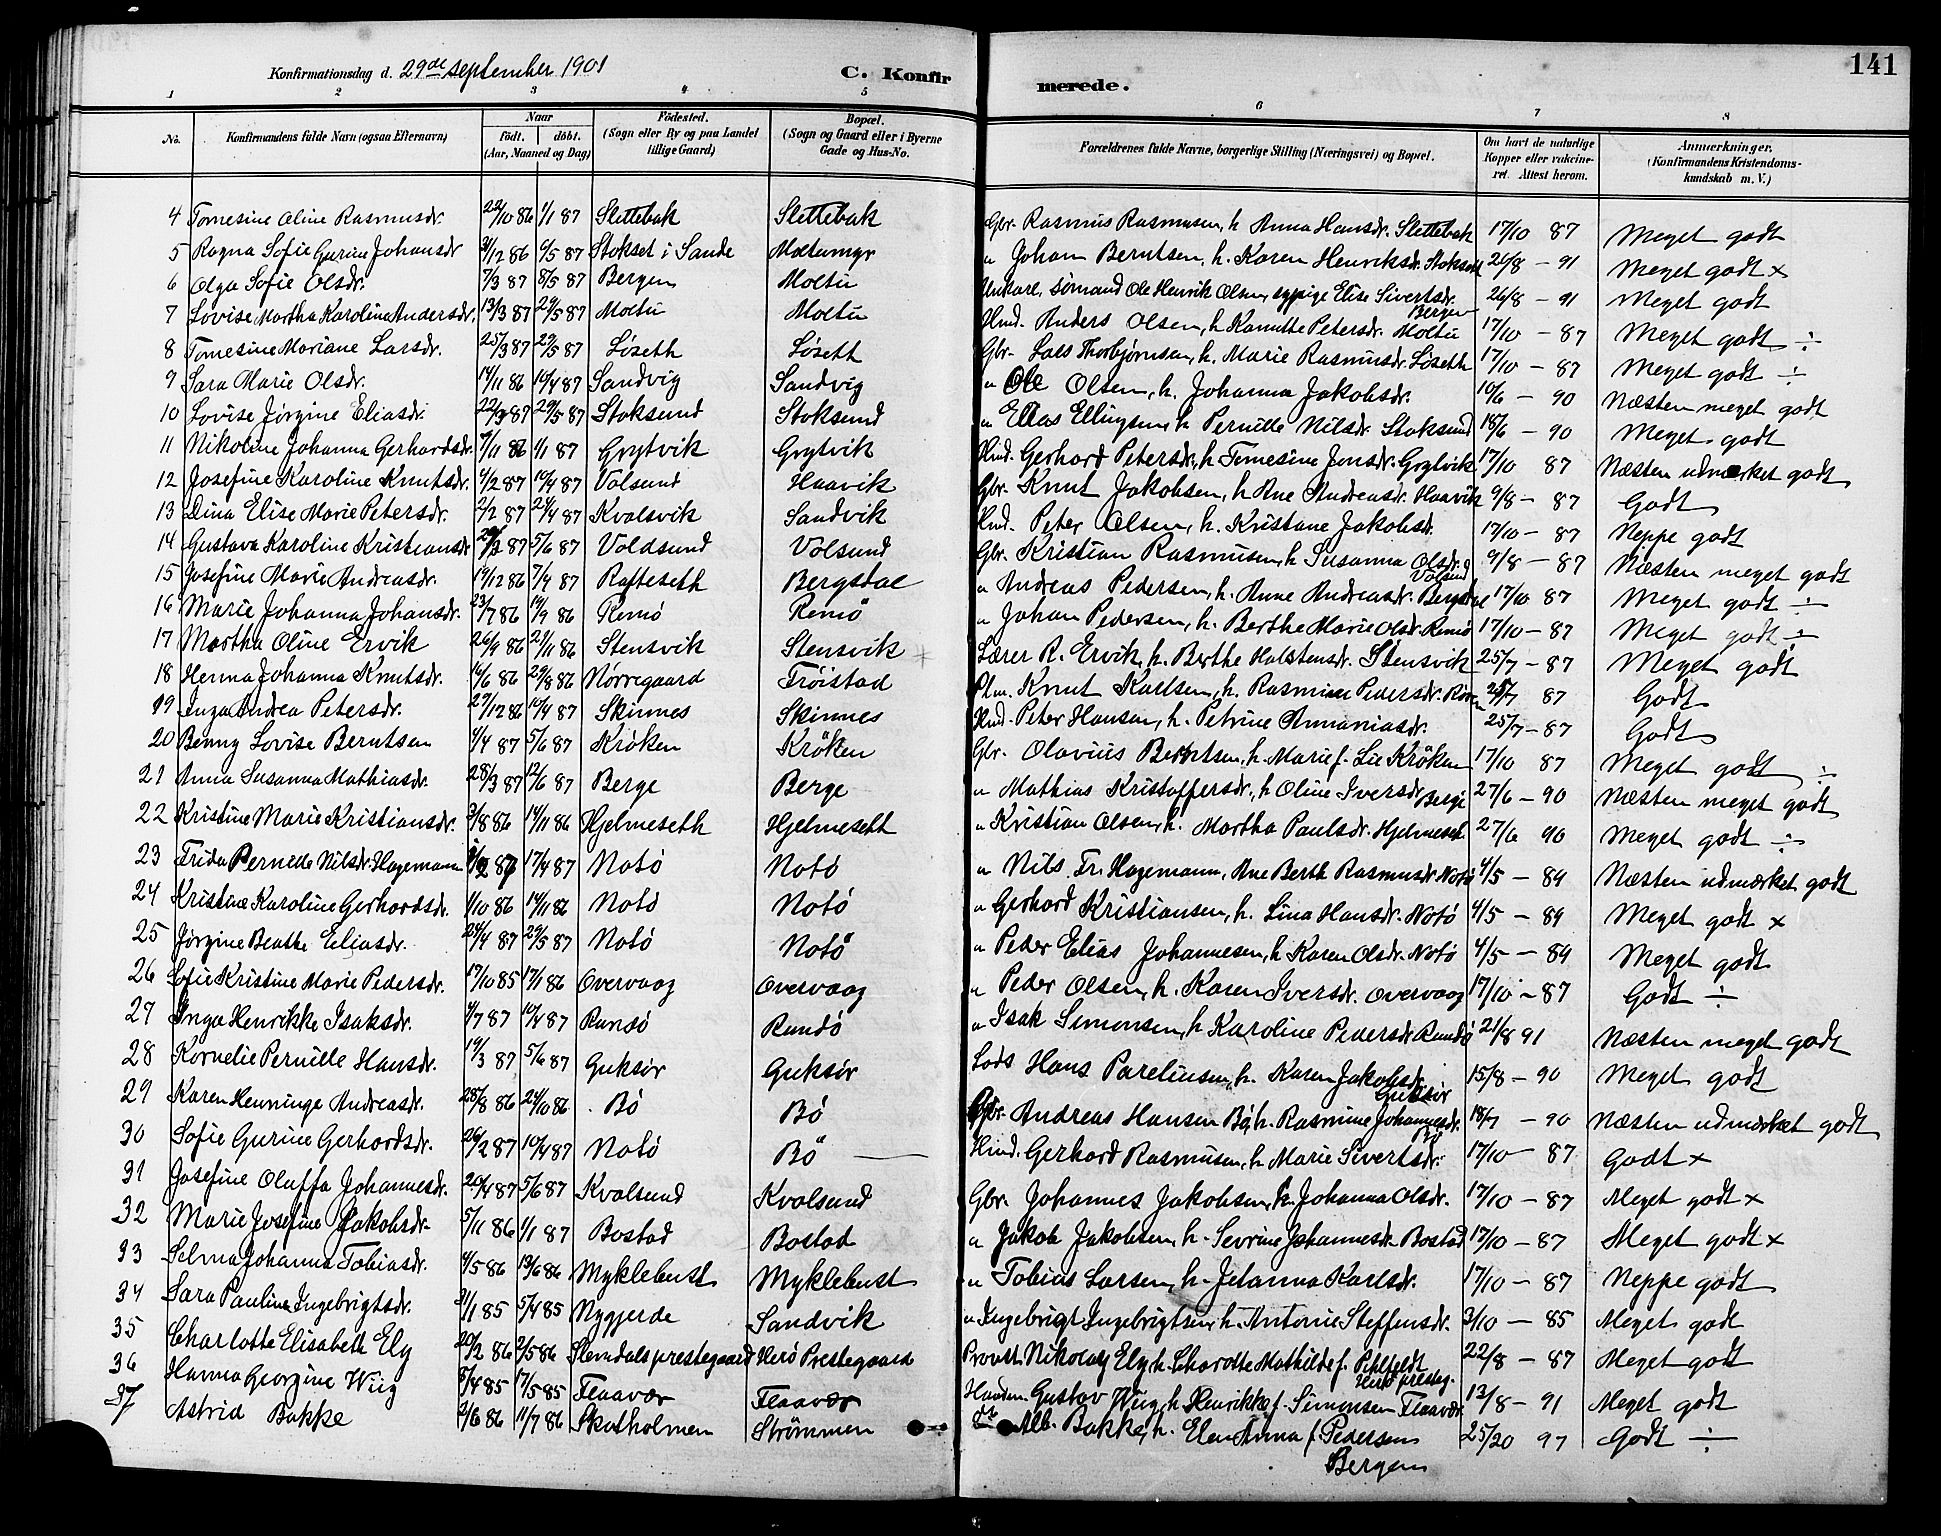 141
Konfirmationsdag d. 29de september 1901 C. Konfirmerede.
1 2 3 4 5 6 7 8
No. Konfirmandens fulde Navn (ogsaa Efternavn) Naar født. døbt. (Aar, Maaned og Dag) Fødested. (Sogn eller By og paa Landet tillige Gaard) Bopæl. (Sogn og Gaard eller i Byerne Gade og Hus-No. Forældrenes fulde Navne, borgerlige Stilling (Næringsvei) og Bopæl. Om havt de naturlige Kopper eller vakcineret. Attest herom. Anmærkninger. (Konfirmandens Kristendomskundskab m. V.)
4 Tomesine Oline Rasmusdr. 22/10 86 1/1 87 Slettebak Slettebak Gbr. Rasmus Rasmusen, h. Anna Hansdr. Slettebak 17/10 87 Meget godt
5 Ragna Sofie Gurine Johansdr 31/12 86 9/5 87 Stokset i Sande Moltumyr " Johan Berntsen, h. Karen Henriksdr. Stokset 26/8 - 91 Meget godt x
6 Olga Sofie Olsdr. 7/3 87 8/5 87 Bergen Moltu Unkarl, sømand Ole Henrik Olsen, sypige Elise Sivertsdr. Bergen 26/8 - 91 Meget godt
7 Lovise Martha Karolina Andersdr. 13/3 87 29/5 87 Moltu Moltu Hmd. Anders Olsen, h. Kanutte Petersdr. Moltu 17/10 - 87 Meget godt ÷
8 Tomesine Mariane Larsdr. 25/3 87 29/5 87 Løseth Løseth Gbr. Lars Thorbjørnsen, h. Marie Rasmusdr. Løseth 17/10 - 87 Meget godt ÷
9 Sara Marie Olsdr. 14/11 86 10/4 87 Sandvig Sandvig " Ole Olsen, h. Johanna Jakobsdr. 10/6 - 90 Næsten meget godt
10 Lovise Jørgine Eliasdr. 22/3 87 29/5 87 Stoksund Stoksund " Elias Ellingsen, h. Pernille Nilsdr. Stoksund 18/6 - 90 Meget godt
11 Nikoline Johanna Gerhardsdr. 7/11 86 1/1 87 Grytvik Grytvik Hmd. Gerhard Petersdr., h. Tomesine Jonsdr. Grytvik 17/10 87 Næsten udmerket godt
12 Josefine Karoline Knutsdr. 4/2 87 10/4 87 Volsund Haavik Gbr. Knut Jakobsen, h. Ane Andreasdr. Haavik 9/8 - 87 Godt
13 Dina Elise Marie Petersdr. 2/2 87 24/4 87 Kvalsvik Sandvik Hmd. Peter Olsen, h. Kristane Jakobsdr. 17/10 - 87 Neppe godt
14 Gustava Karoline Kristiansdr. 29/3 87 5/6 87 Voldsund Volsund Gbr. Kristian Rasmusen, h. Susanna Olsdr. Volsund 9/8 - 87 Næsten meget godt
15 Josefine Marie Andreasdr. 19/12 86 7/4 87 Rafteseth Bergsdal " Andreas Pedersen, h. Anne Andreasdr. Bergsdal 17/10 87 Meget godt ÷
16 Marie Johanna Johansdr. 23/7 86 19/9 86 Remø Remø " Johan Pedersen, h. Berthe Marie Olsdr. Remø 17/10 - 87 Meget godt ÷
17 Martha Oline Ervik 26/9 86 21/11 86 Stensvik Stensvik Lærer R. Ervik, h. Berthe Halstensdr. Stensvik 25/7 - 87 Meget godt
18 Herma Johanna Knutsdr. 16/6 86 29/8 86 Nørregaard Frøistad Plm. Knut Karlsen, h. Rasmine Pedersdr. 25/7 87 Godt
19 Inga Andrea Petersdr. 27/12 86 10/4 87 Skinnes Skinnes Hmd. Peter Hansen, h. Petrine Ananiasdr. 25/7 - 87 Godt
20 Benny Lovise Berntsen 4/4 87 5/6 87 Krøken Krøken Gbr. Olavius Berntsen, h. Marie f. Lie Krøken 17/10 87 Meget godt ÷
21 Anna Susanna Mathiasdr. 28/3 87 12/6 87 Berge Berge " Mathias Kristoffersdr., h. Oline Iversdr. Berge 27/6 - 90 Næsten meget godt
22 Kristine Marie Kristiansdr. 3/8 86 14/11 86 Hjelmeseth Hjelmeseth " Kristian Olsen, h. Martha Paulsdr. Hjelmeseth 27/6 90 Meget godt ÷
23 Frida Pernille Nilsdr. Hagemann 17/4 87 Notø Notø " Nils Fr. Hagemann, Ane Berth. Rasmusdr. Notø 4/5 - 89 Næsten udmerket godt
24 Kristine Karoline Gerhardsdr. 1/10 86 14/11 86 Notø Notø " Gerhard Kristiansen, h. Lina Hansdr. Notø 4/5 - 89 Meget godt x
25 Jørgine Beathe Eliasdr. 24/4 87 29/5 87 Notø Notø " Peder Elias Johannesen, h. Karen Olsdr. Notø 4/5 - 89 Meget godt
26 Sofie Kristine Marie Pedersdr. 17/10 85 17/1 86 Overvaag Overvaag " Peder Olsen, h. Karen Iversdr. Overvaag 17/10 - 87 Godt ÷
27 Inga Henrikke Isaksdr. 4/7 87 10/4 87 Rundø Rundø " Isak Simonsen, h. Karoline Pedersdr. Rundø 21/8 91 Næsten meget godt
28 Kornelie Pernille Hansdr. 19/3 87 5/6 87 Guksør Guksør Lods Hans Parelinsen, h. Karen Jakobsdr. Guksør 15/8 - 90 Meget godt
29 Karen Henninge Andreasdr. 28/8 86 24/10 86 Bø Bø Gbr. Andreas Hansen Bø, h. Rasmine Johannesdr. Bø 18/7 - 90 Næsten udmærket godt
30 Sofie Gurine Gerhardsdr. 26/2 87 10/4 87 Notø Bø Hmd. Gerhard Rasmusen, h. Marie Sivertsdr. 17/10 - 87 Godt x
31 Josefine Oluffa Johannesdr. 20/4 87 5/6 87 Kvalsund Kvalsund Gbr. Johannes Jakobsen, h. Johanna Olsdr. 17/10 - 87 Meget godt x
32 Marie Josefine Jakobsdr. 5/11 86 1/1 87 Bostad Bostad " Jakob Jakobsen, h. Sevrine Johannesdr. Bostad 17/10 - 87 Meget godt x
33 Selma Johanna Tobiasdr. 4/5 86 13/6 86 Myklebust Myklebust " Tobias Larsen, h. Jetanna Karlsdr. 17/10 - 87 Neppe godt
34 Sara Pauline Ingebrigtsdr. 31/1 85 5/4 85 Nygjerde Sandvik " Ingebrigt Ingebrigtsen, h. Antonie Steffensdr. 3/10 - 85 Meget godt
35 Charlotte Elisabeth Ely 20/2 86 2/5 86 Slemdals prestegaard Herø Prestegaard Provst Nikolay Ely, h. Charlotte Mathilde f. Pehlfeldt Herø presteg. 22/8 - 87 Meget godt
36 Hanna Georgine Wiig 8/4 85 17/5 85 Flaavær Flaavær Handm. Gustav Wiig, h. Henrikke f. Simonsen Flaavær 13/8 - 91 Meget godt
37 Astrid Bakke 2/6 86 11/7 86 Skotholmen Strømmen do Alb. Bakke, h. Elen Anna f. Pedersen Bergen 25/20 97 Godt ÷